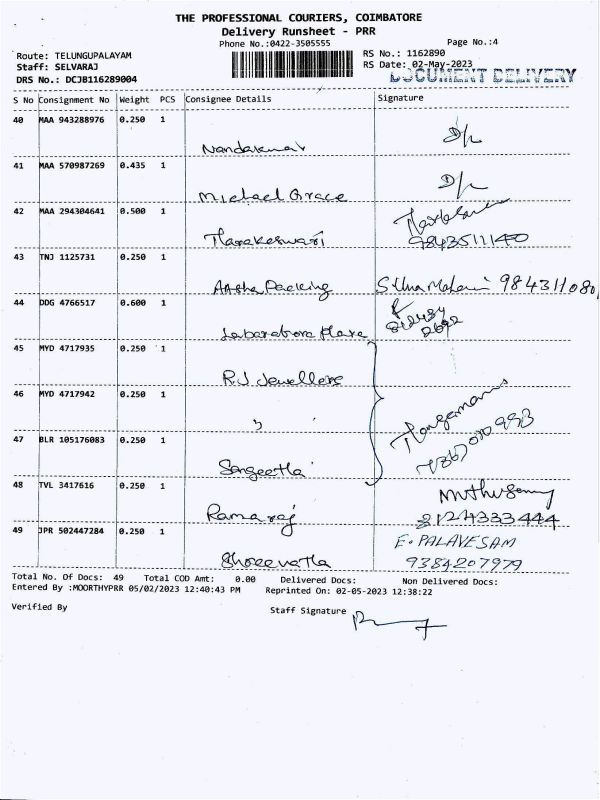 THE PROFESSIONAL COURIERS, COIMBATORE
Delivery Runsheet - PRR
Phone No.:0422-3505555
Page No.:4
Route: TELUNGUPALAYAM
RS No.: 1162890
Staff: SELVARAJ
RS Date: 02-May-2023
DRS No.: DCJB116289004
DOCUMENT DELIVERY
S No Consignment No Weight PCS Consignee Details Signature
40 MAA 943288976 0.250 1
Nandakumar
41 MAA 570987269 0.435 1
Michael Grace
42 MAA 294304641 0.500 1
Tharakeswari 9843511140
43 TNJ 1125731 0.250 1
Aasha Packing 984311080
44 DDG 4766517 0.600 1
45 MYD 4717935 0.250 1
R.J Jewellers
46 MYD 4717942 0.250 1
"
47 BLR 105176083 0.250 1
Sangeetha
48 TVL 3417616 0.250 1
Muthusamy
Ramaraj 8124333444
49 JPR 502447284 0.250 1
E. PALAVESAM
Shreevatha 9384207979
Total No. Of Docs: 49 Total COD Amt: 0.00 Delivered Docs: Non Delivered Docs:
Entered By :MOORTHYPRR 05/02/2023 12:40:43 PM Reprinted On: 02-05-2023 12:38:22
Verified By Staff Signature